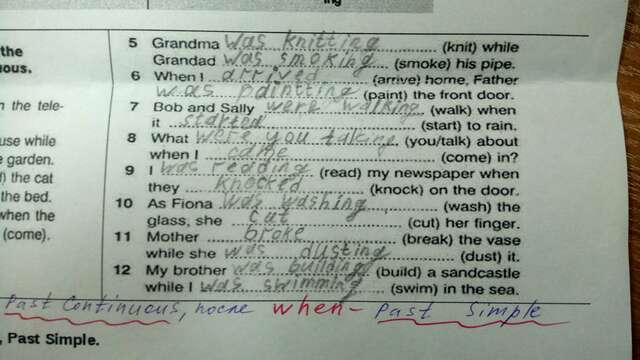 ing
the
ous.
n the tele-
use while
e garden.
f) the cat
the bed.
when the
(come).
, Past Simple.
5 Grandma was knitting (knit) while
Grandad was smoking (smoke) his pipe.
6 When I arrived (arrive) home, Father
was paintting (paint) the front door.
7 Bob and Sally were walking (walk) when
it started (start) to rain.
8 What were you talking (you/talk) about
when I came (come) in?
9 I was reading (read) my newspaper when
they knocked (knock) on the door.
10 As Fiona was washing (wash) the
glass, she cut (cut) her finger.
11 Mother broke (break) the vase
while she was dusting (dust) it.
12 My brother was building (build) a sandcastle
while I was swimming (swim) in the sea.
Past Continuous, после when - Past Simple